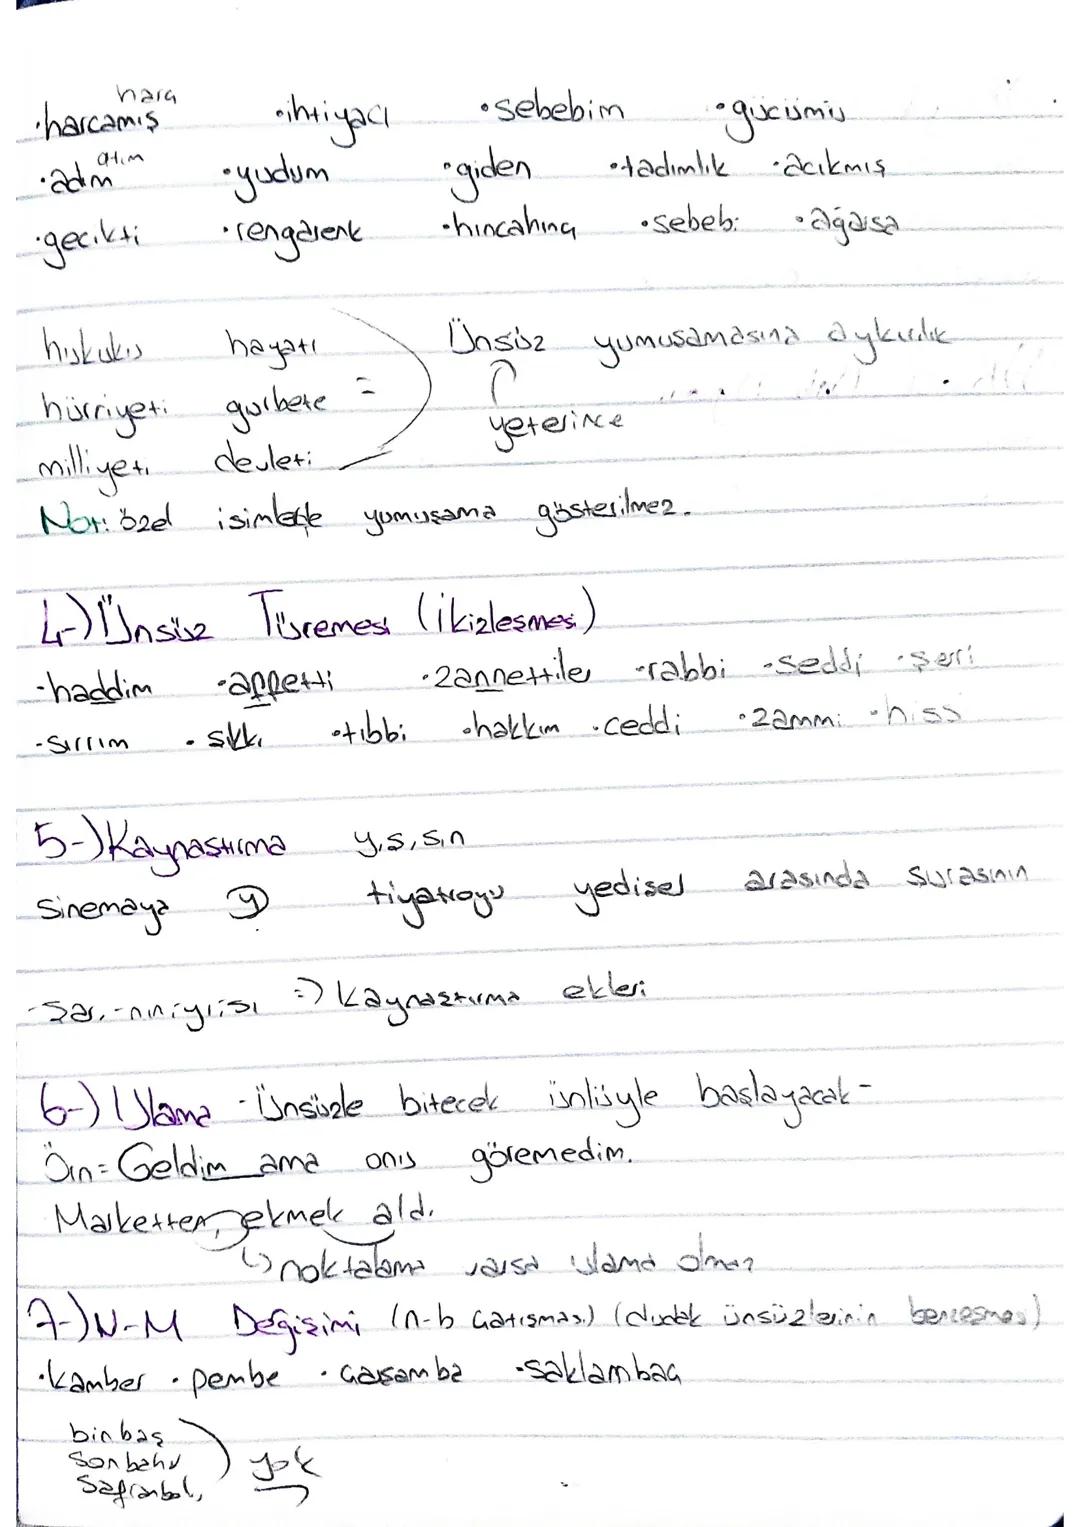 harç
·harcamış ·ihtiyacı ·sebebim ·gücümü
atım
·adım ·yudum ·giden ·tadımlık ·acıkmış
·gecikti ·rengarenk ·hıncahınç ·sebebi ·ağarsa
hukuku hayatı
Ünsüz yumuşamasına aykırılık
hürriyeti gurbete =
yeterince
milliyeti devleti
Not: özel isimlerde yumuşama gösterilmez.
4-) Ünsüz Türemesi (İkizleşmesi)
-haddim ·affetti ·zannettiler -rabbi -seddi ·şerri
-sırrım ·şıkkı ·tıbbi ·hakkım ·ceddi ·zammı -hiss
5-) Kaynaştırma y,ş,s,n
sinemaya y tiyatroyu yedişer arasında surasının
-sarı-nın iyisi => kaynaştırma ekleri
6-) Ulama -ünsüzle bitecek ünlüyle başlayacak-
Örn= Geldim ama onu göremedim.
Marketten, ekmek aldı.
↳ noktalama varsa ulama olmaz
7-) N-M Değişimi (n-b çatışması) (dudak ünsüzlerinin benzeşmesi)
·kamber ·pembe ·çarşamba ·saklambaç
binbaş
Sonbahar
Safranbolu
yok